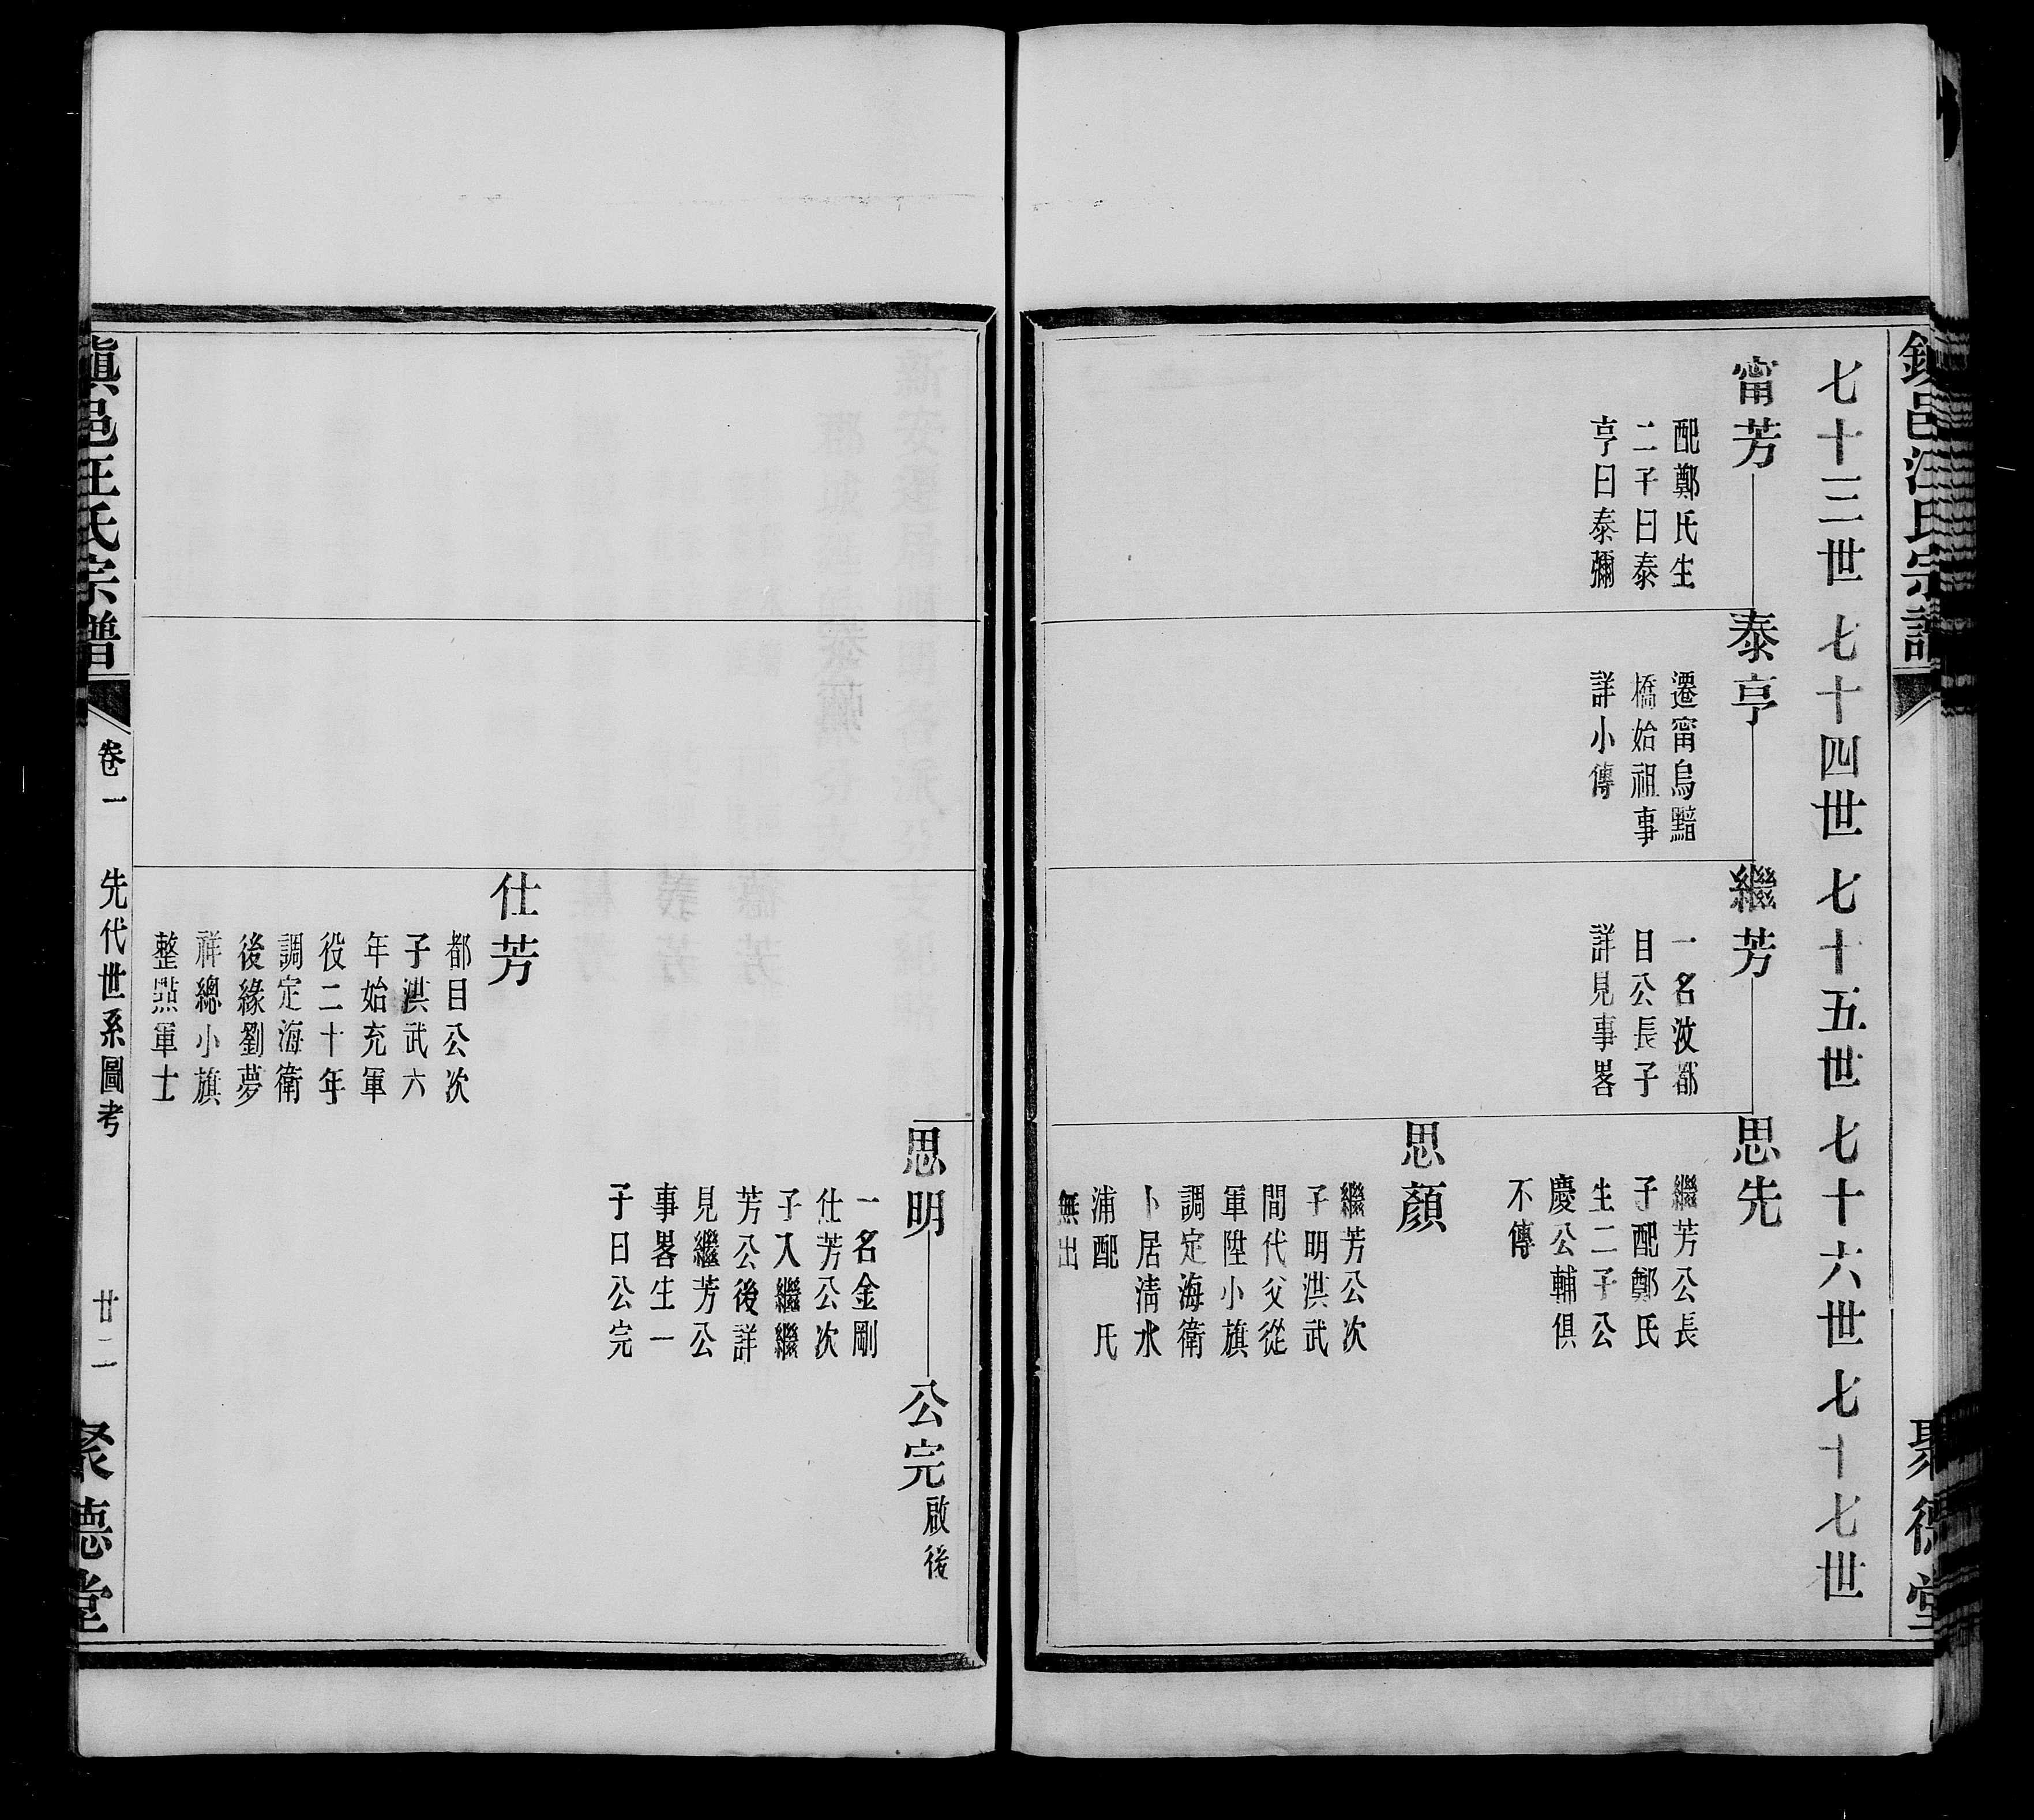 鎮邑汪氏宗譜
聚德堂
七十三世
七十四世
七十五世
七十六世
七十七世
甯芳
配鄭氏生
二子曰泰
亨曰泰彌
泰亨
遷甯烏黯
橋始祖事
詳小傳
繼芳
一名汝都
目公長子
詳見事畧
思先
繼芳公長
子配鄭氏
生二子公
慶公輔俱
不傳
思顏
繼芳公次
子明洪武
間代父從
軍陞小旗
調定海衛
卜居清水
浦配　氏
無出
思明
一名金剛
仕芳公次
子入繼繼
芳公後詳
見繼芳公
事畧生一
子曰公完
公完
啟後
仕芳
都目公次
子洪武六
年始充軍
役二十年
調定海衛
後緣劉夢
祥總小旗
整點軍士
鎮邑汪氏宗譜
卷一
先代世系圖考
廿二
聚德堂